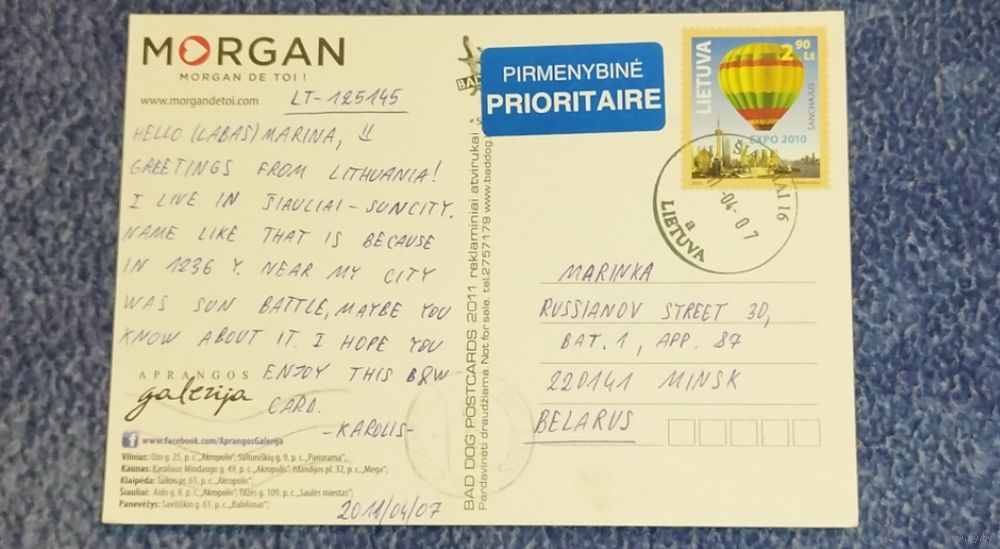 MORGAN
MORGAN DE TOI !
www.morgandetoi.com
LT-125145
HELLO (LABAS) MARINA,
GREETINGS FROM LITHUANIA!
I LIVE IN ŠIAULIAI - SUNCITY.
NAME LIKE THAT IS BECAUSE
IN 1236 Y. NEAR MY CITY
WAS SUN BATTLE, MAYBE YOU
KNOW ABOUT IT. I HOPE YOU
ENJOY THIS B&W
CARD.
-KAROLIS-
APRANGOS
galerija
www.facebook.com/AprangosGalerija
Vilnius: Ozo g. 25, p. c. „Akropolis", Saltoniškių g. 9, p. c. „Panorama";
Kaunas: Karaliaus Mindaugo g. 49, p. c. „Akropolis", Islandijos pl. 32, p. c. „Mega";
Klaipėda: Taikos pr. 61, p. c. „Akropolis";
Šiauliai: Aido g. 8, p. c. „Akropolis", Tilžės g. 109, p. c. „Saulės miestas";
Panevėžys: Savitiškio g. 61, p. c. „Babilonas";
2011/04/07
BAD DOG POSTCARDS 2011 reklaminiai atvirukai
Pardavinėti draudžiama. Not for sale. tel.2757179 www.baddog
BAD
PIRMENYBINĖ
PRIORITAIRE
LIETUVA
2 90 Lt
ŠANCHAJUS
EXPO 2010
16
-04-07
a
LIETUVA
MARINKA
RUSSIANOV STREET 30,
BAT. 1, APP. 87
220141 MINSK
BELARUS
www.ay.by